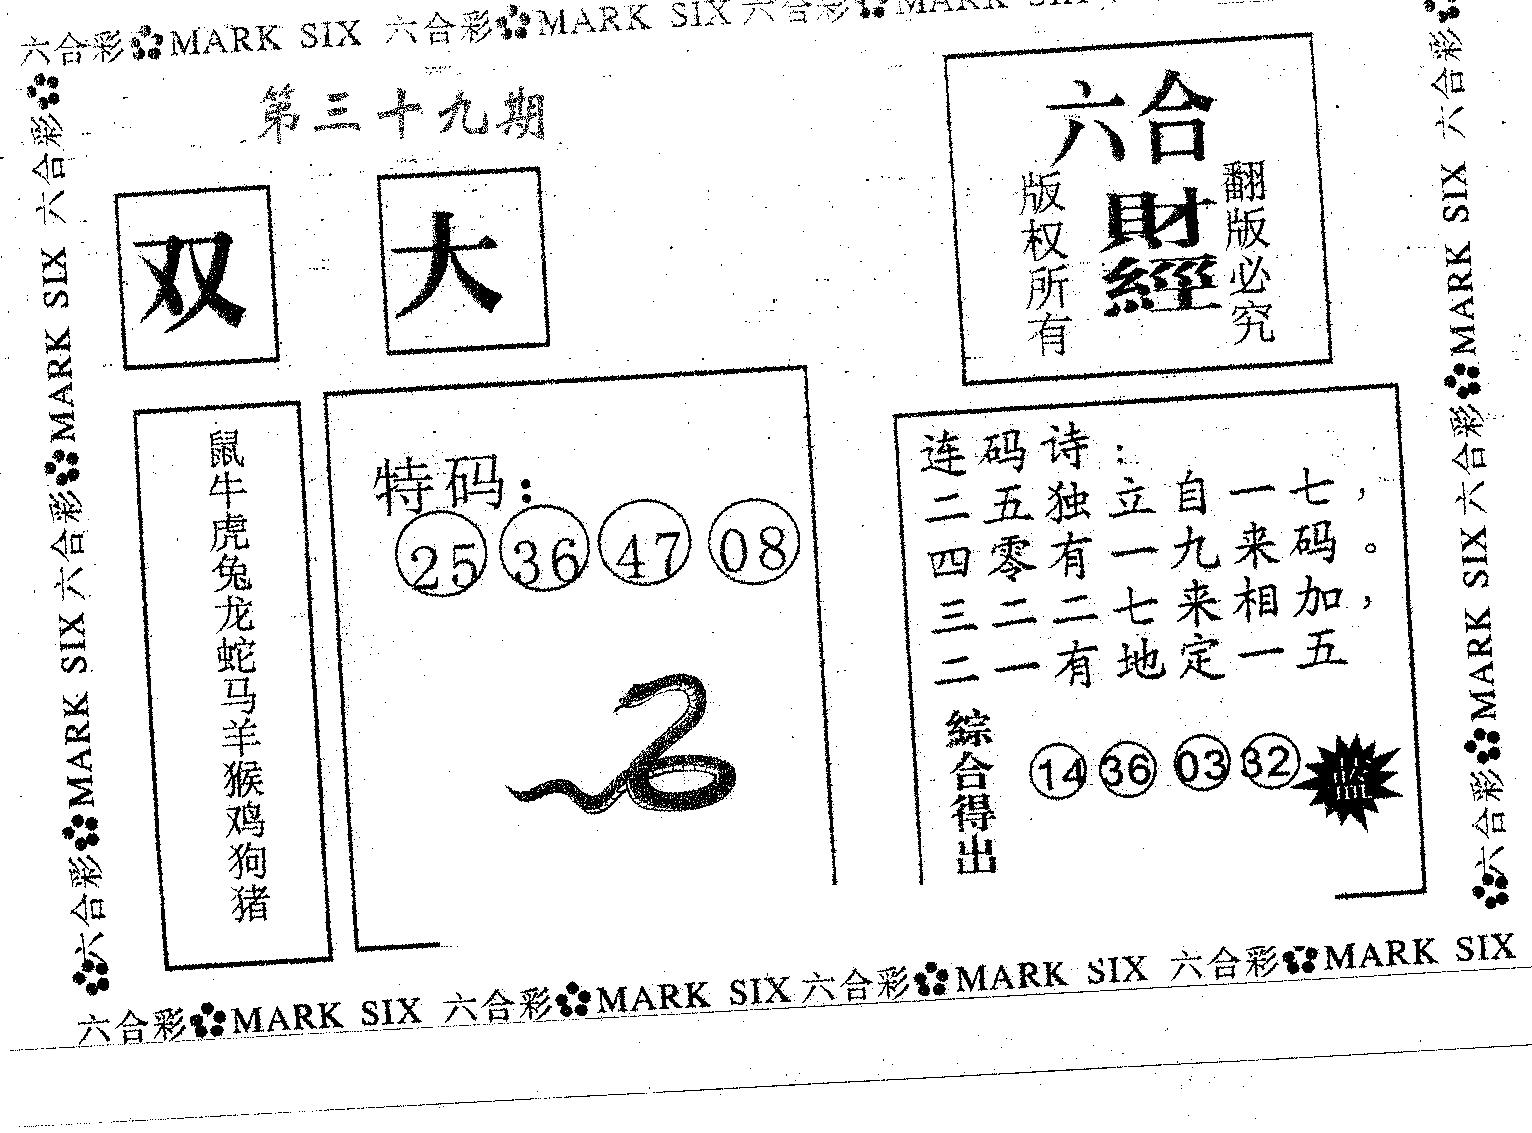 六合彩 MARK SIX 六合彩 MARK SIX 六合彩 MARK SIX
六合彩 MARK SIX 六合彩 MARK SIX 六合彩 MARK SIX 六合彩
第三十九期
双
大
六合
財經
版权所有
翻版必究
鼠牛虎兔龙蛇马羊猴鸡狗猪
特码:
25 36 47 08
连码诗:
二五独立自一七,
四零有一九来码。
三二二七来相加,
二一有地定一五
綜合得出
14 36 03 32
六合彩 MARK SIX 六合彩 MARK SIX 六合彩 MARK SIX 六合彩
六合彩 MARK SIX 六合彩 MARK SIX 六合彩 MARK SIX 六合彩 MARK SIX